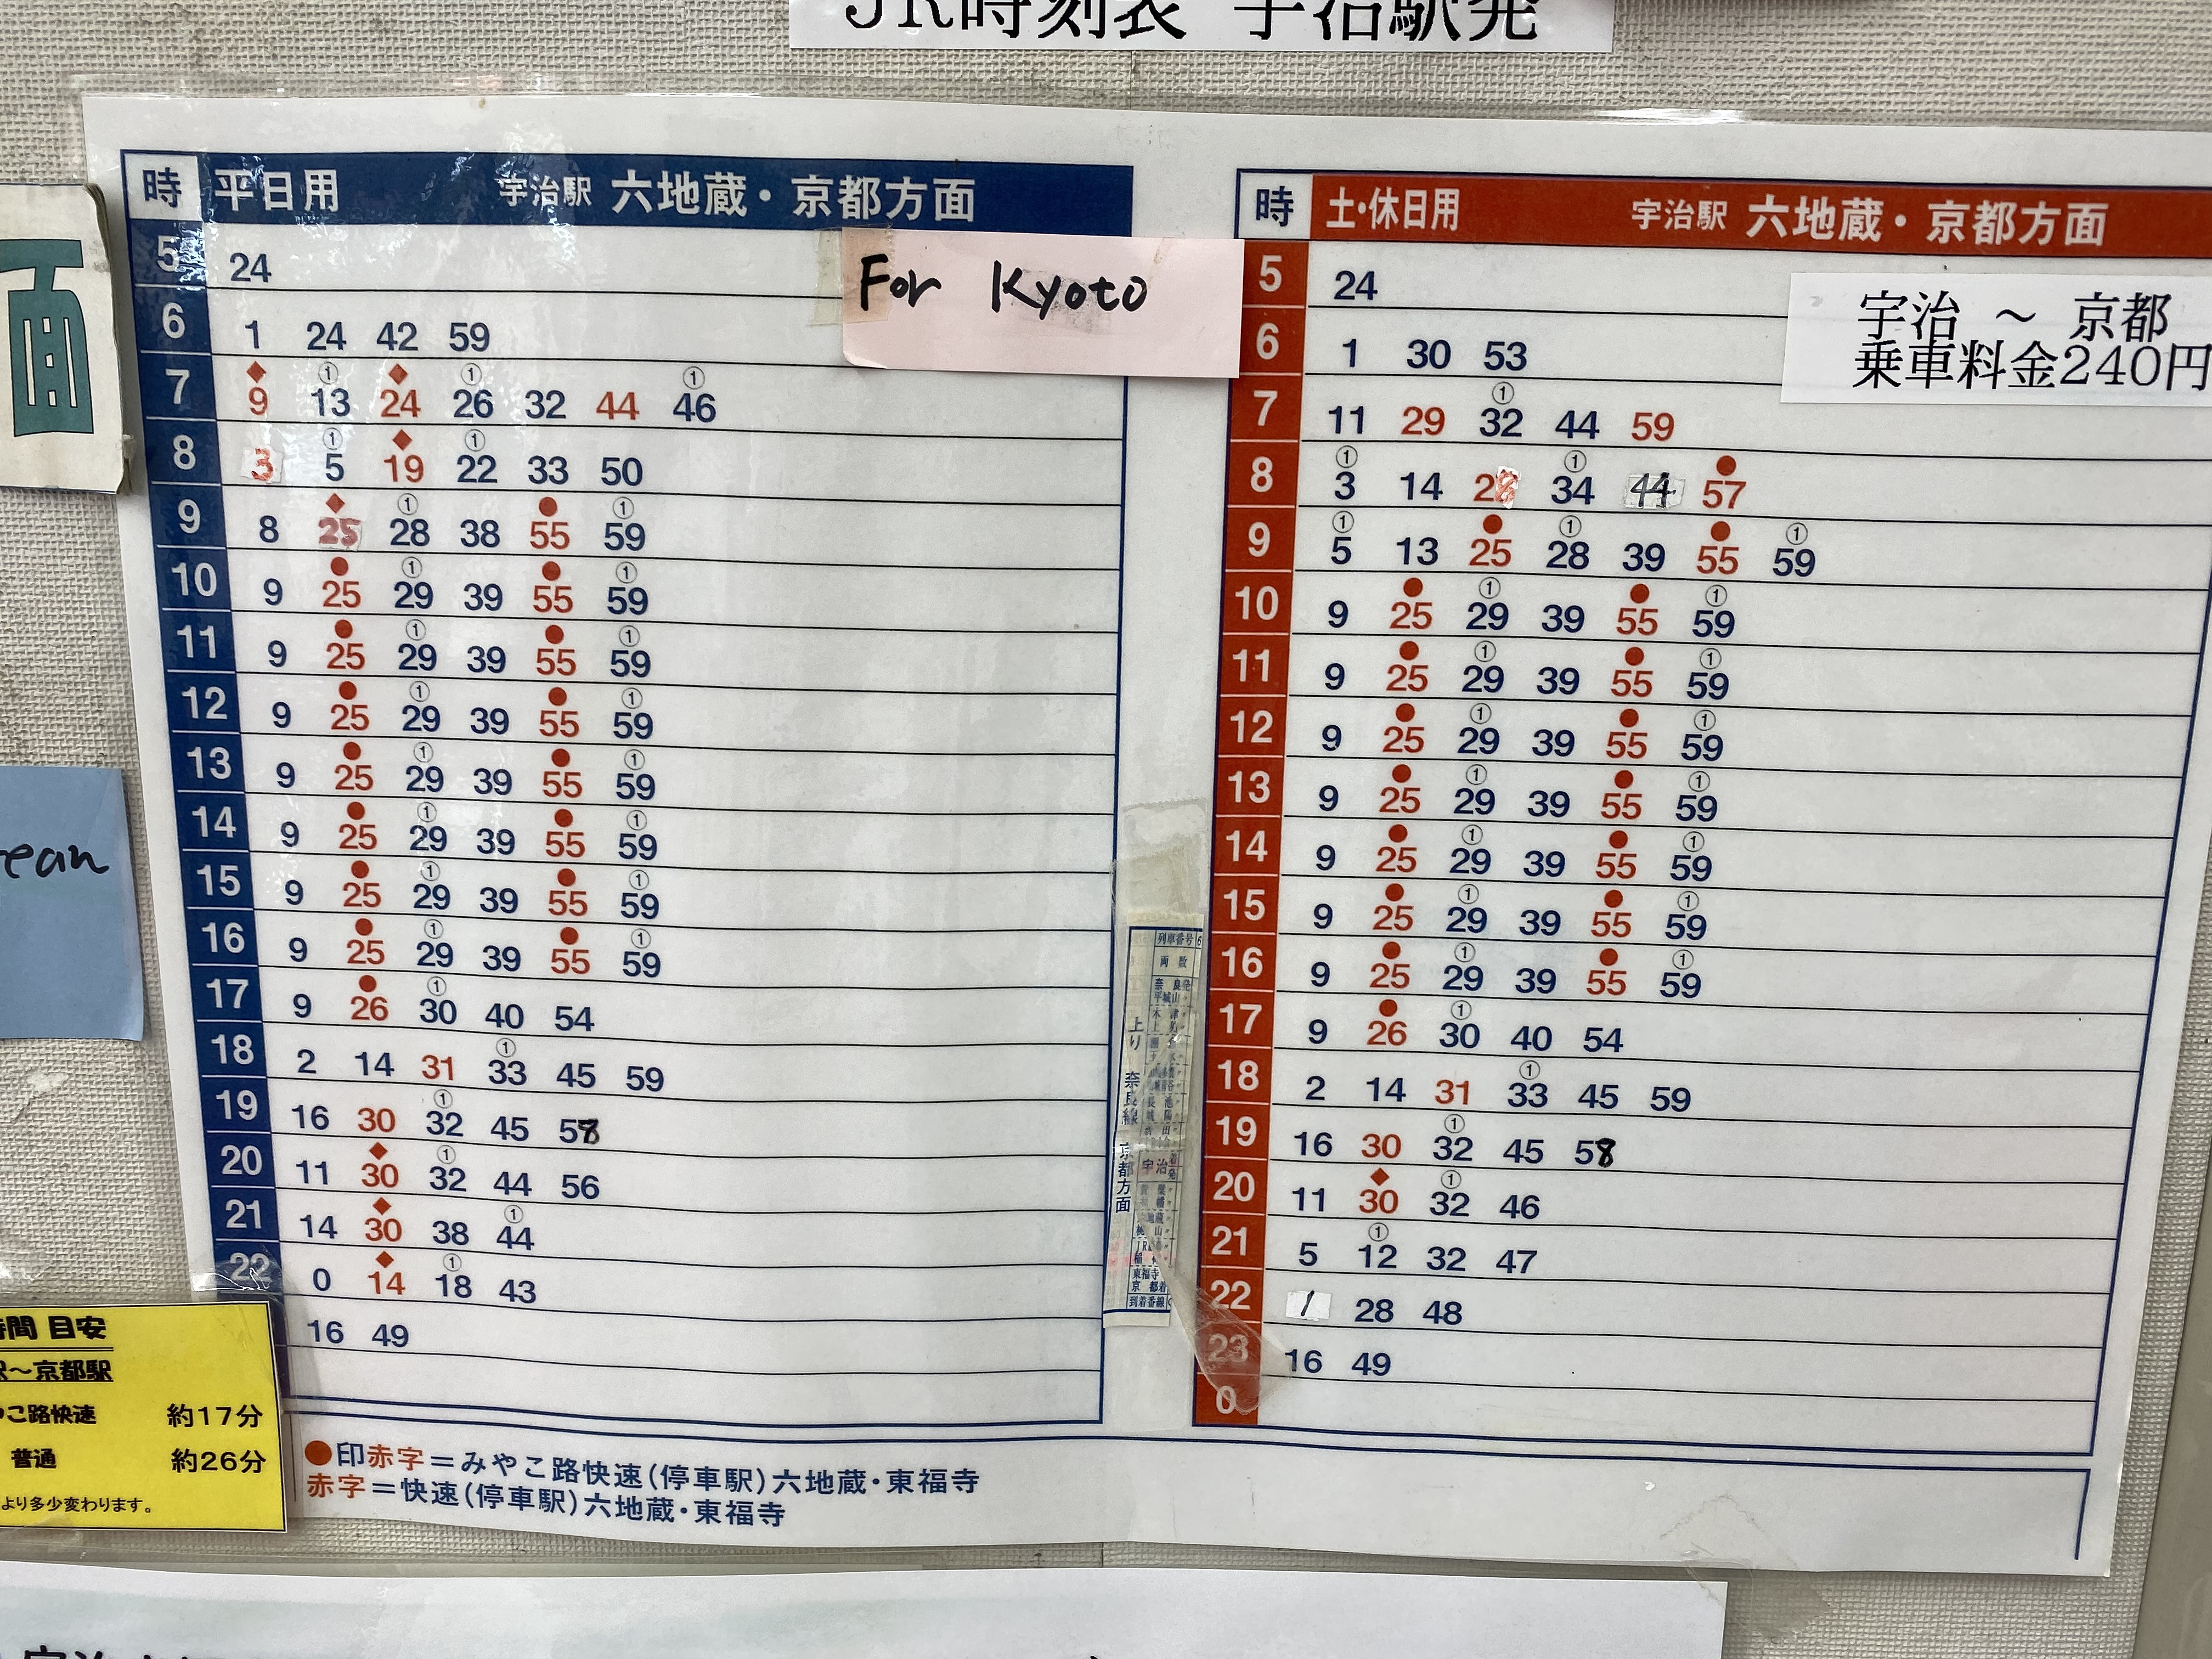 JR時刻表 宇治駅発
時 平日用 宇治駅 六地蔵・京都方面
5 24
6 1 24 42 59
7 ◆9 ①13 ◆24 ①26 32 44 ①46
8 3 ①5 ◆19 ①22 33 50
9 8 ◆25 ①28 38 ●55 ①59
10 9 ●25 ①29 39 ●55 ①59
11 9 ●25 ①29 39 ●55 ①59
12 9 ●25 ①29 39 ●55 ①59
13 9 ●25 ①29 39 ●55 ①59
14 9 ●25 ①29 39 ●55 ①59
15 9 ●25 ①29 39 ●55 ①59
16 9 ●25 ①29 39 ●55 ①59
17 9 ●26 ①30 40 54
18 2 14 31 ①33 45 59
19 16 30 ①32 45 58
20 11 ◆30 ①32 44 56
21 14 ◆30 38 ①44
22 0 ◆14 ①18 43
16 49
For Kyoto
時 土・休日用 宇治駅 六地蔵・京都方面
宇治 ～ 京都
乗車料金240円
5 24
6 1 30 53
7 11 29 ①32 44 59
8 ①3 14 28 ①34 44 ●57
9 ①5 13 ●25 ①28 39 ●55 ①59
10 9 ●25 ①29 39 ●55 ①59
11 9 ●25 ①29 39 ●55 ①59
12 9 ●25 ①29 39 ●55 ①59
13 9 ●25 ①29 39 ●55 ①59
14 9 ●25 ①29 39 ●55 ①59
15 9 ●25 ①29 39 ●55 ①59
16 9 ●25 ①29 39 ●55 ①59
17 9 ●26 ①30 40 54
18 2 14 31 ①33 45 59
19 16 30 ①32 45 58
20 11 ◆30 ①32 46
21 5 ①12 32 47
22 1 28 48
23 16 49
0
●印赤字＝みやこ路快速(停車駅)六地蔵・東福寺
赤字＝快速(停車駅)六地蔵・東福寺
面
ean
列車番号
両数
上り 奈良線 京都方面
宇治
東福寺
京都着
到着番線
間 目安
～京都駅
こ路快速 約17分
普通 約26分
より多少変わります。